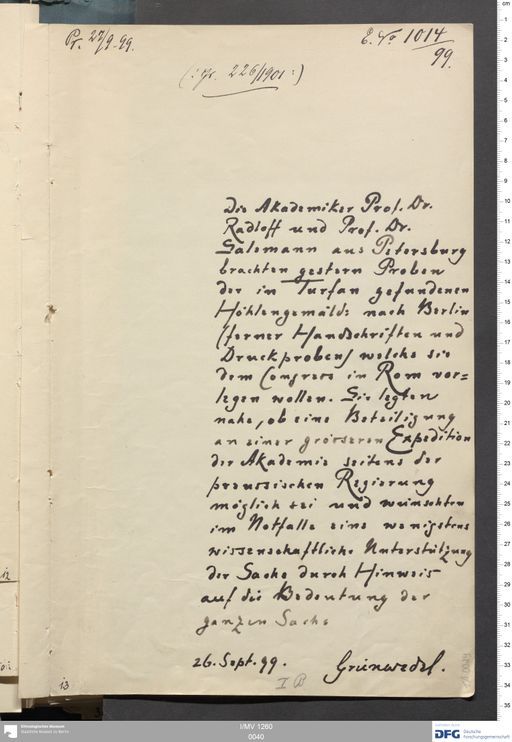 Pr. 27/9.99.
E. No 1014/99.
(: Jr. 226/1901 :)
Die Akademiker Prof. Dr.
Radloff und Prof. Dr.
Salemann aus Petersburg
brachten gestern Proben
der in Turfan gefundenen
Höhlengemälde nach Berlin
(ferner Handschriften und
Druckproben) welche sie
dem Congress in Rom vor=
legen wollen. Sie legten
nahe, ob eine Beteiligung
an einer grösseren Expedition
der Akademie seitens der
preussischen Regierung
möglich sei und wünschten
im Notfalle eine wenigstens
wissenschaftliche Unterstützung
der Sache durch Hinweis
auf die Bedeutung der
ganzen Sache
26. Sept. 99. Grünwedel.
I B
12
13
I/MV 1260
0040
Ethnologisches Museum
Staatliche Museen zu Berlin
DFG Deutsche
Forschungsgemeinschaft
cm
1
2
3
4
5
6
7
8
9
10
11
12
13
14
15
16
17
18
19
20
21
22
23
24
25
26
27
28
29
30
31
32
33
34
35